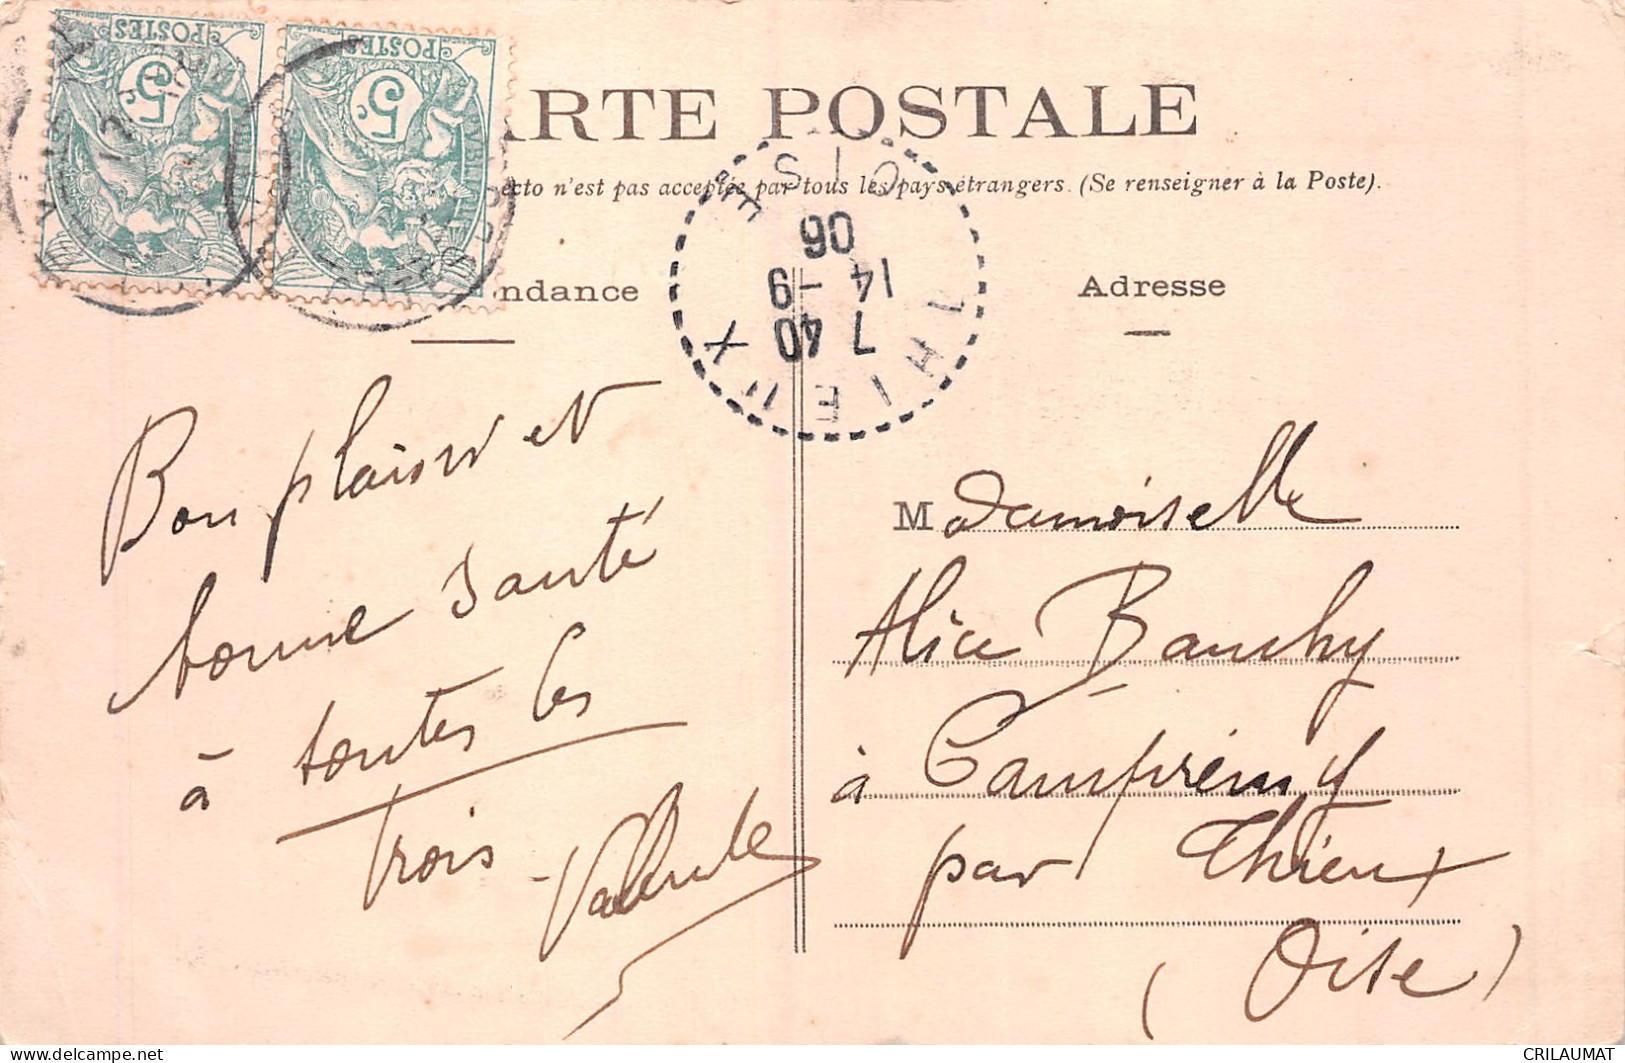 POSTES
5c
POSTES
5c
ARTE POSTALE
ecto n'est pas acceptée par tous les pays étrangers. (Se renseigner à la Poste).
ndance
Adresse
THIEUX
OISE
7 40
14 -9
06
Bon plaisir et
bonne santé
à toutes les
trois -
Mademoiselle
Alice Bauchy
à Campremy
par Thieux
(Oise)
CRILAUMAT